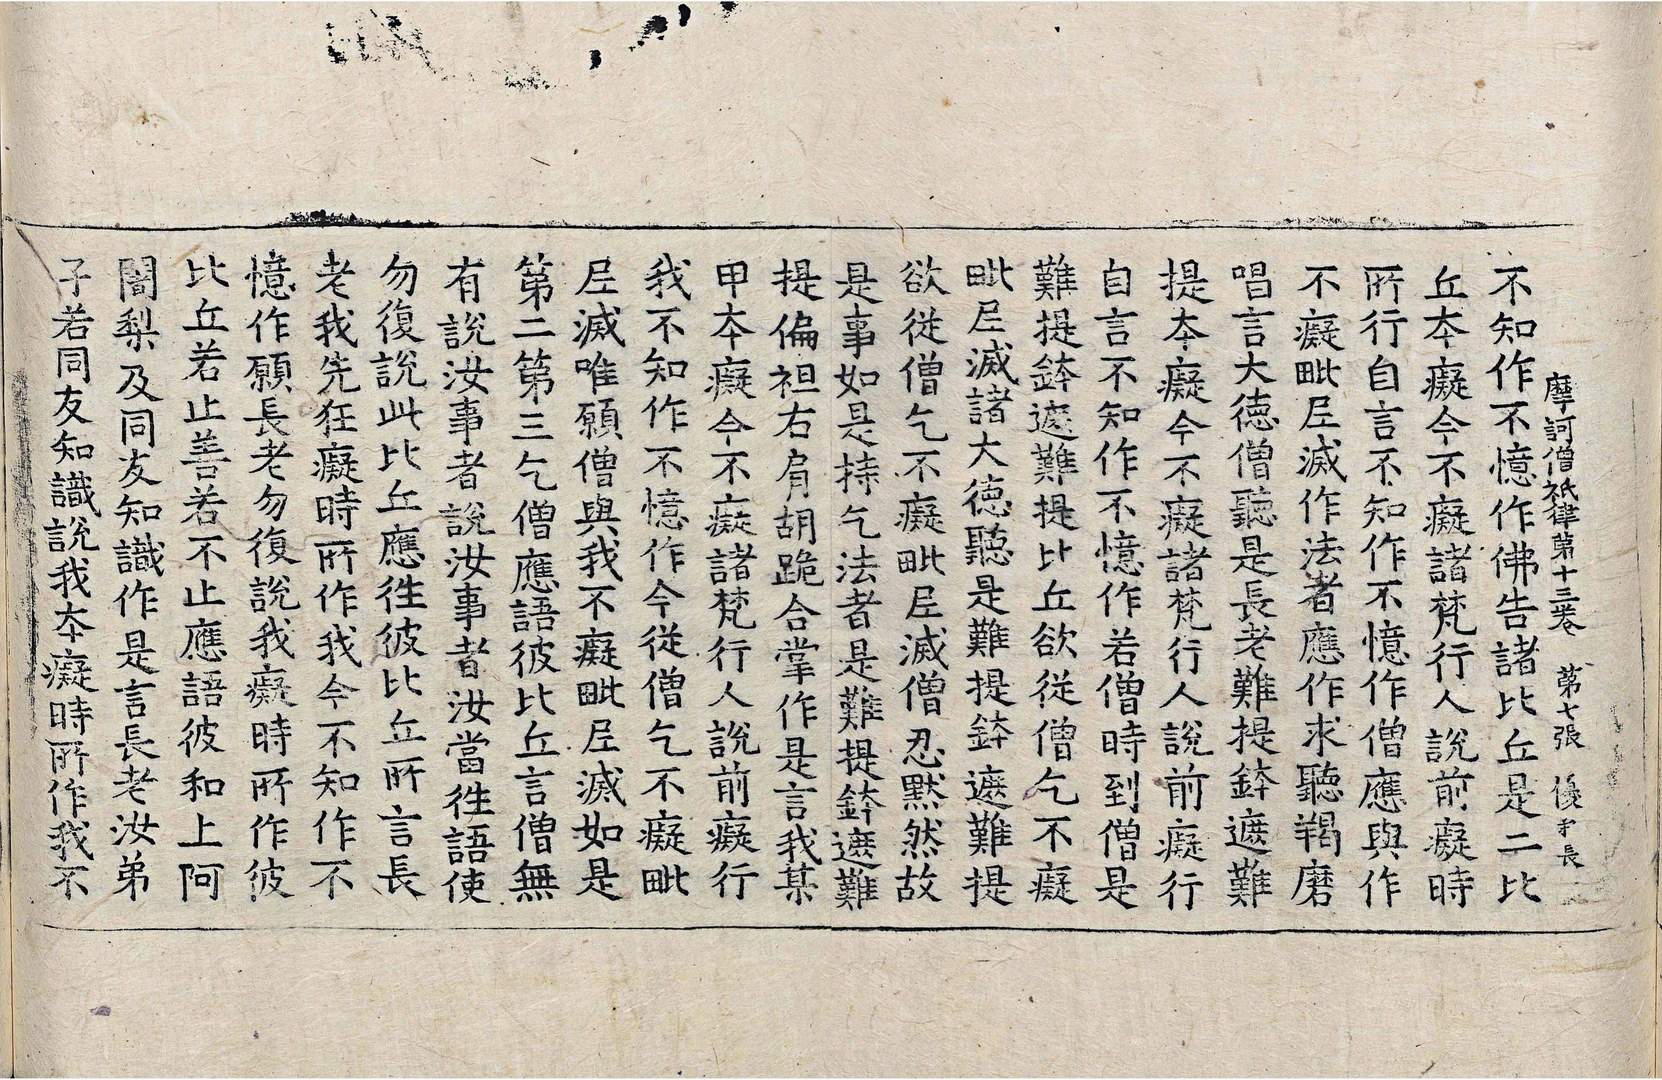 摩訶僧祇律第十三卷 第七張 優 長
不知作不憶作佛告諸比丘是二比
丘夲癡今不癡諸梵行人說前癡時
所行自言不知作不憶作僧應與作
不癡毗尼滅作法者應作求聽羯磨
唱言大德僧聽是長老難提鉢遮難
提夲癡今不癡諸梵行人說前癡行
自言不知作不憶作若僧時到僧是
難提鉢遮難提比丘欲從僧乞不癡
毗尼滅諸大德聽是難提鉢遮難提
欲從僧乞不癡毗尼滅僧忍默然故
是事如是持乞法者是難提鉢遮難
提偏袒右肩胡跪合掌作是言我某
甲夲癡今不癡諸梵行人說前癡行
我不知作不憶作今從僧乞不癡毗
尼滅唯願僧與我不癡毗尼滅如是
第二第三乞僧應語彼比丘言僧無
有說汝事者說汝事者汝當往語使
勿復說此比丘應往彼比丘所言長
老我先狂癡時所作我今不知作不
憶作願長老勿復說我癡時所作彼
比丘若止善若不止應語彼和上阿
闍梨及同友知識作是言長老汝弟
子若同友知識說我夲癡時所作我不